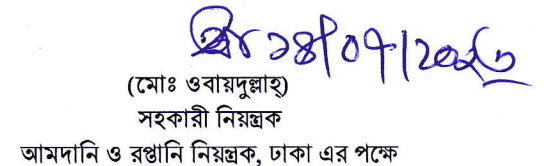 ১৪/০৭/২০২৩
(মোঃ ওবায়দুল্লাহ্)
সহকারী নিয়ন্ত্রক
আমদানি ও রপ্তানি নিয়ন্ত্রক, ঢাকা এর পক্ষে